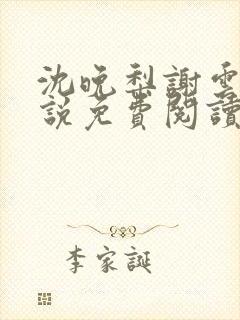 沈晚梨謝雲
說免費閱讀
李家誕